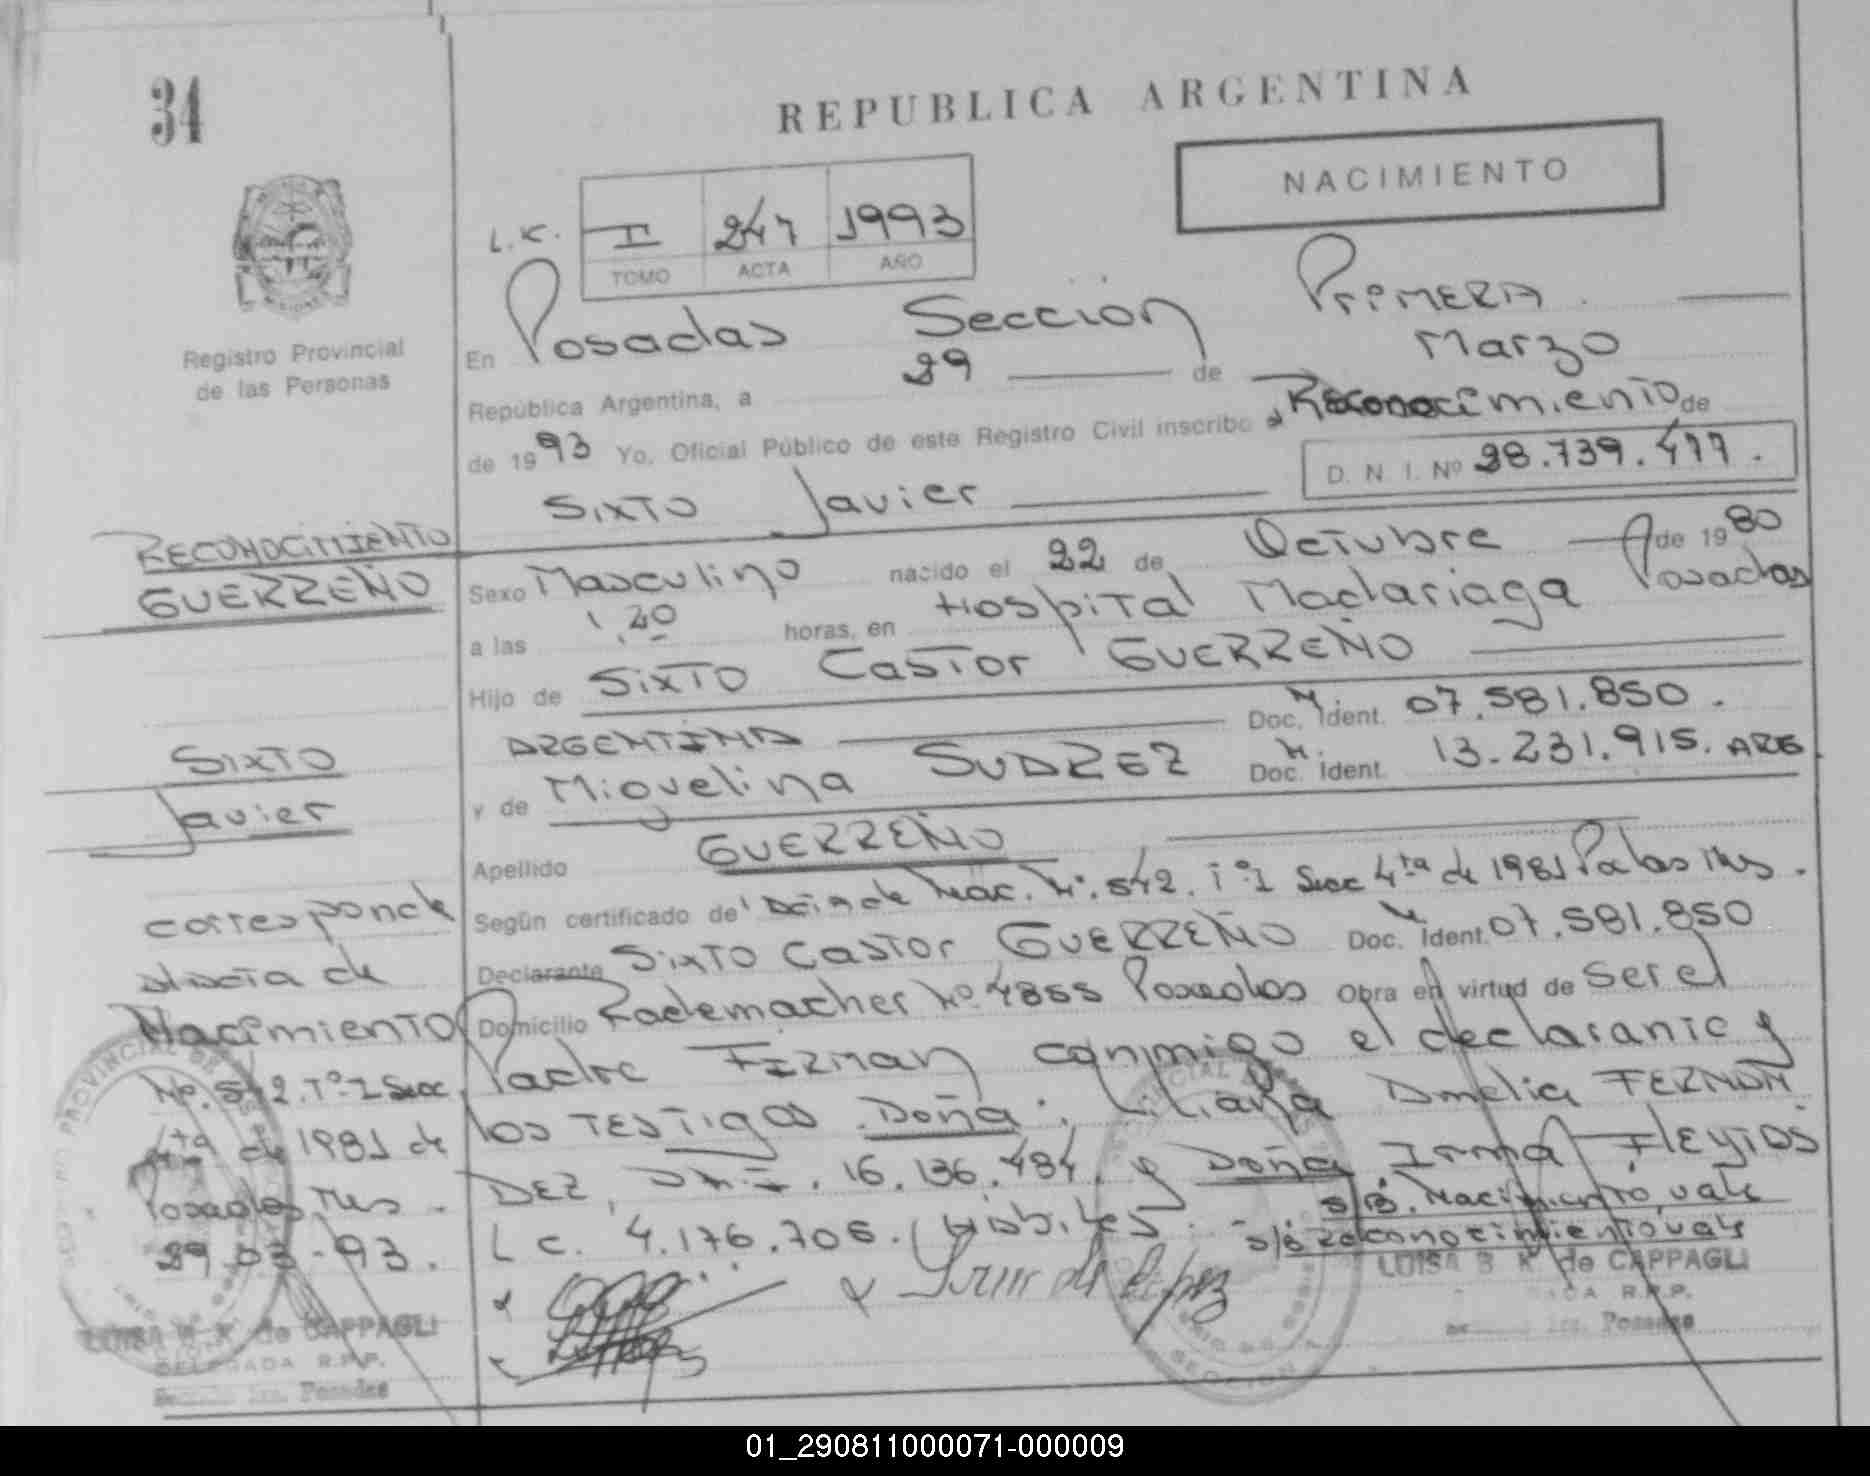 34
REPUBLICA ARGENTINA
NACIMIENTO
L.K. I 247 1993
TOMO ACTA AÑO
Registro Provincial
de las Personas
En Posadas Sección Primera
República Argentina, a 29 de Marzo
de 1993 Yo, Oficial Público de este Registro Civil inscribo el Reconocimiento de
D. N. I. Nº 28.739.477.
Sixto Javier
RECONOCIMIENTO
GUERREÑO
Sixto
Javier
corresponde
al acta de
Nacimiento
Nº. 542. Tº I Secc
4ta de 1981 de
Posadas Mns.
29-03-93.
LUISA B. K. de CAPPAGLI
DELEGADA R.P.P.
Sección 1ra. Posadas
Sexo Masculino nacido el 22 de Octubre de 1980
a las 1,20 horas, en Hospital Madariaga Posadas
Hijo de Sixto Castor GUERREÑO
ARGENTINA Doc. M. Ident. 07.581.850.
y de Miguelina SUAREZ Doc. N. Ident. 13.231.915. ARG
Apellido GUERREÑO
Según certificado de Acta de Nac. Nº. 542. Tº I Secc 4ta de 1981 Pdas Mns.
Declarante Sixto Castor GUERREÑO Doc. M. Ident. 07.581.850
Domicilio Rademacher Nº 4855 Posadas Obra en virtud de Ser el
Padre Firman conmigo el declarante y
los Testigos Doña: Liliana Amelia FERNAN
DEZ, DNI. 16.136.484. y Doña Irma Fleytas
L C. 4.176.706. Habiles. s/b. Nacimiento, vale
s/b reconocimiento vale
LUISA B K de CAPPAGLI
R.P.P.
1ra. Posadas
01_290811000071-000009